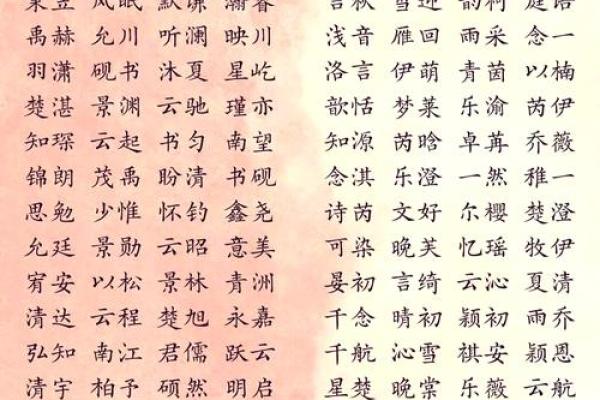 禹赫 允川 听澜 映川 浅音 雁回 雨采 念一
羽潇 砚书 沐夏 星屹 洛言 伊萌 青茵 以楠
楚湛 景渊 云驰 瑾亦 歆恬 梦莱 乐渝 芮伊
知琛 云起 书匀 南望 知源 芮晗 卓苒 乔薇
锦朗 茂禹 盼清 书砚 念淇 乐澄 一然 稚一
思勉 少惟 怀钧 鑫尧 诗芮 文好 尔樱 楚澄
允廷 景勋 云昭 意美 可染 晚芙 忆瑶 牧伊
宥安 以松 景林 青洲 晏初 言绮 云沁 夏清
清达 云程 楚旭 永嘉 千念 晴初 颖初 雨乔
弘知 南江 君儒 跃云 千航 沁雪 祺安 颖恩
清宇 柏予 硕然 明启 星楚 晚棠 乐薇 云航